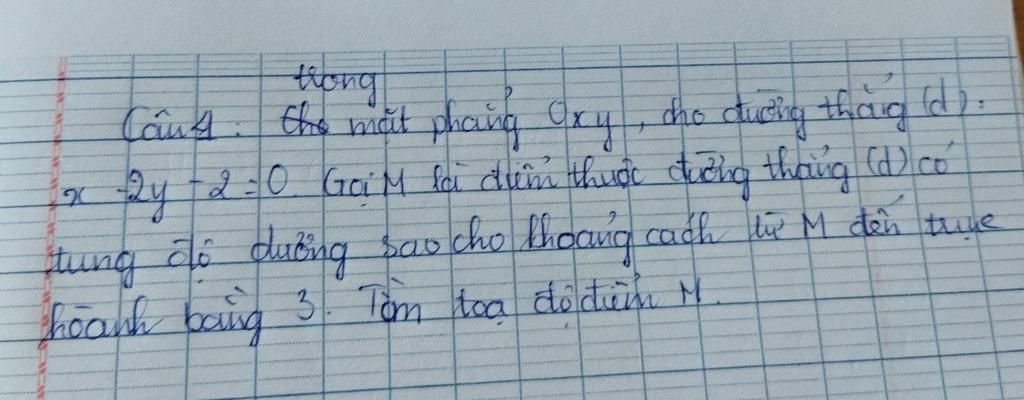 trong
Câu 4: mặt phẳng Oxy, cho đường thẳng (d):
x - 2y - 2 = 0 Gọi M là điểm thuộc đường thẳng (d) có
tung độ dương sao cho khoảng cách từ M đến trục
hoành bằng 3. Tìm toạ độ điểm M.